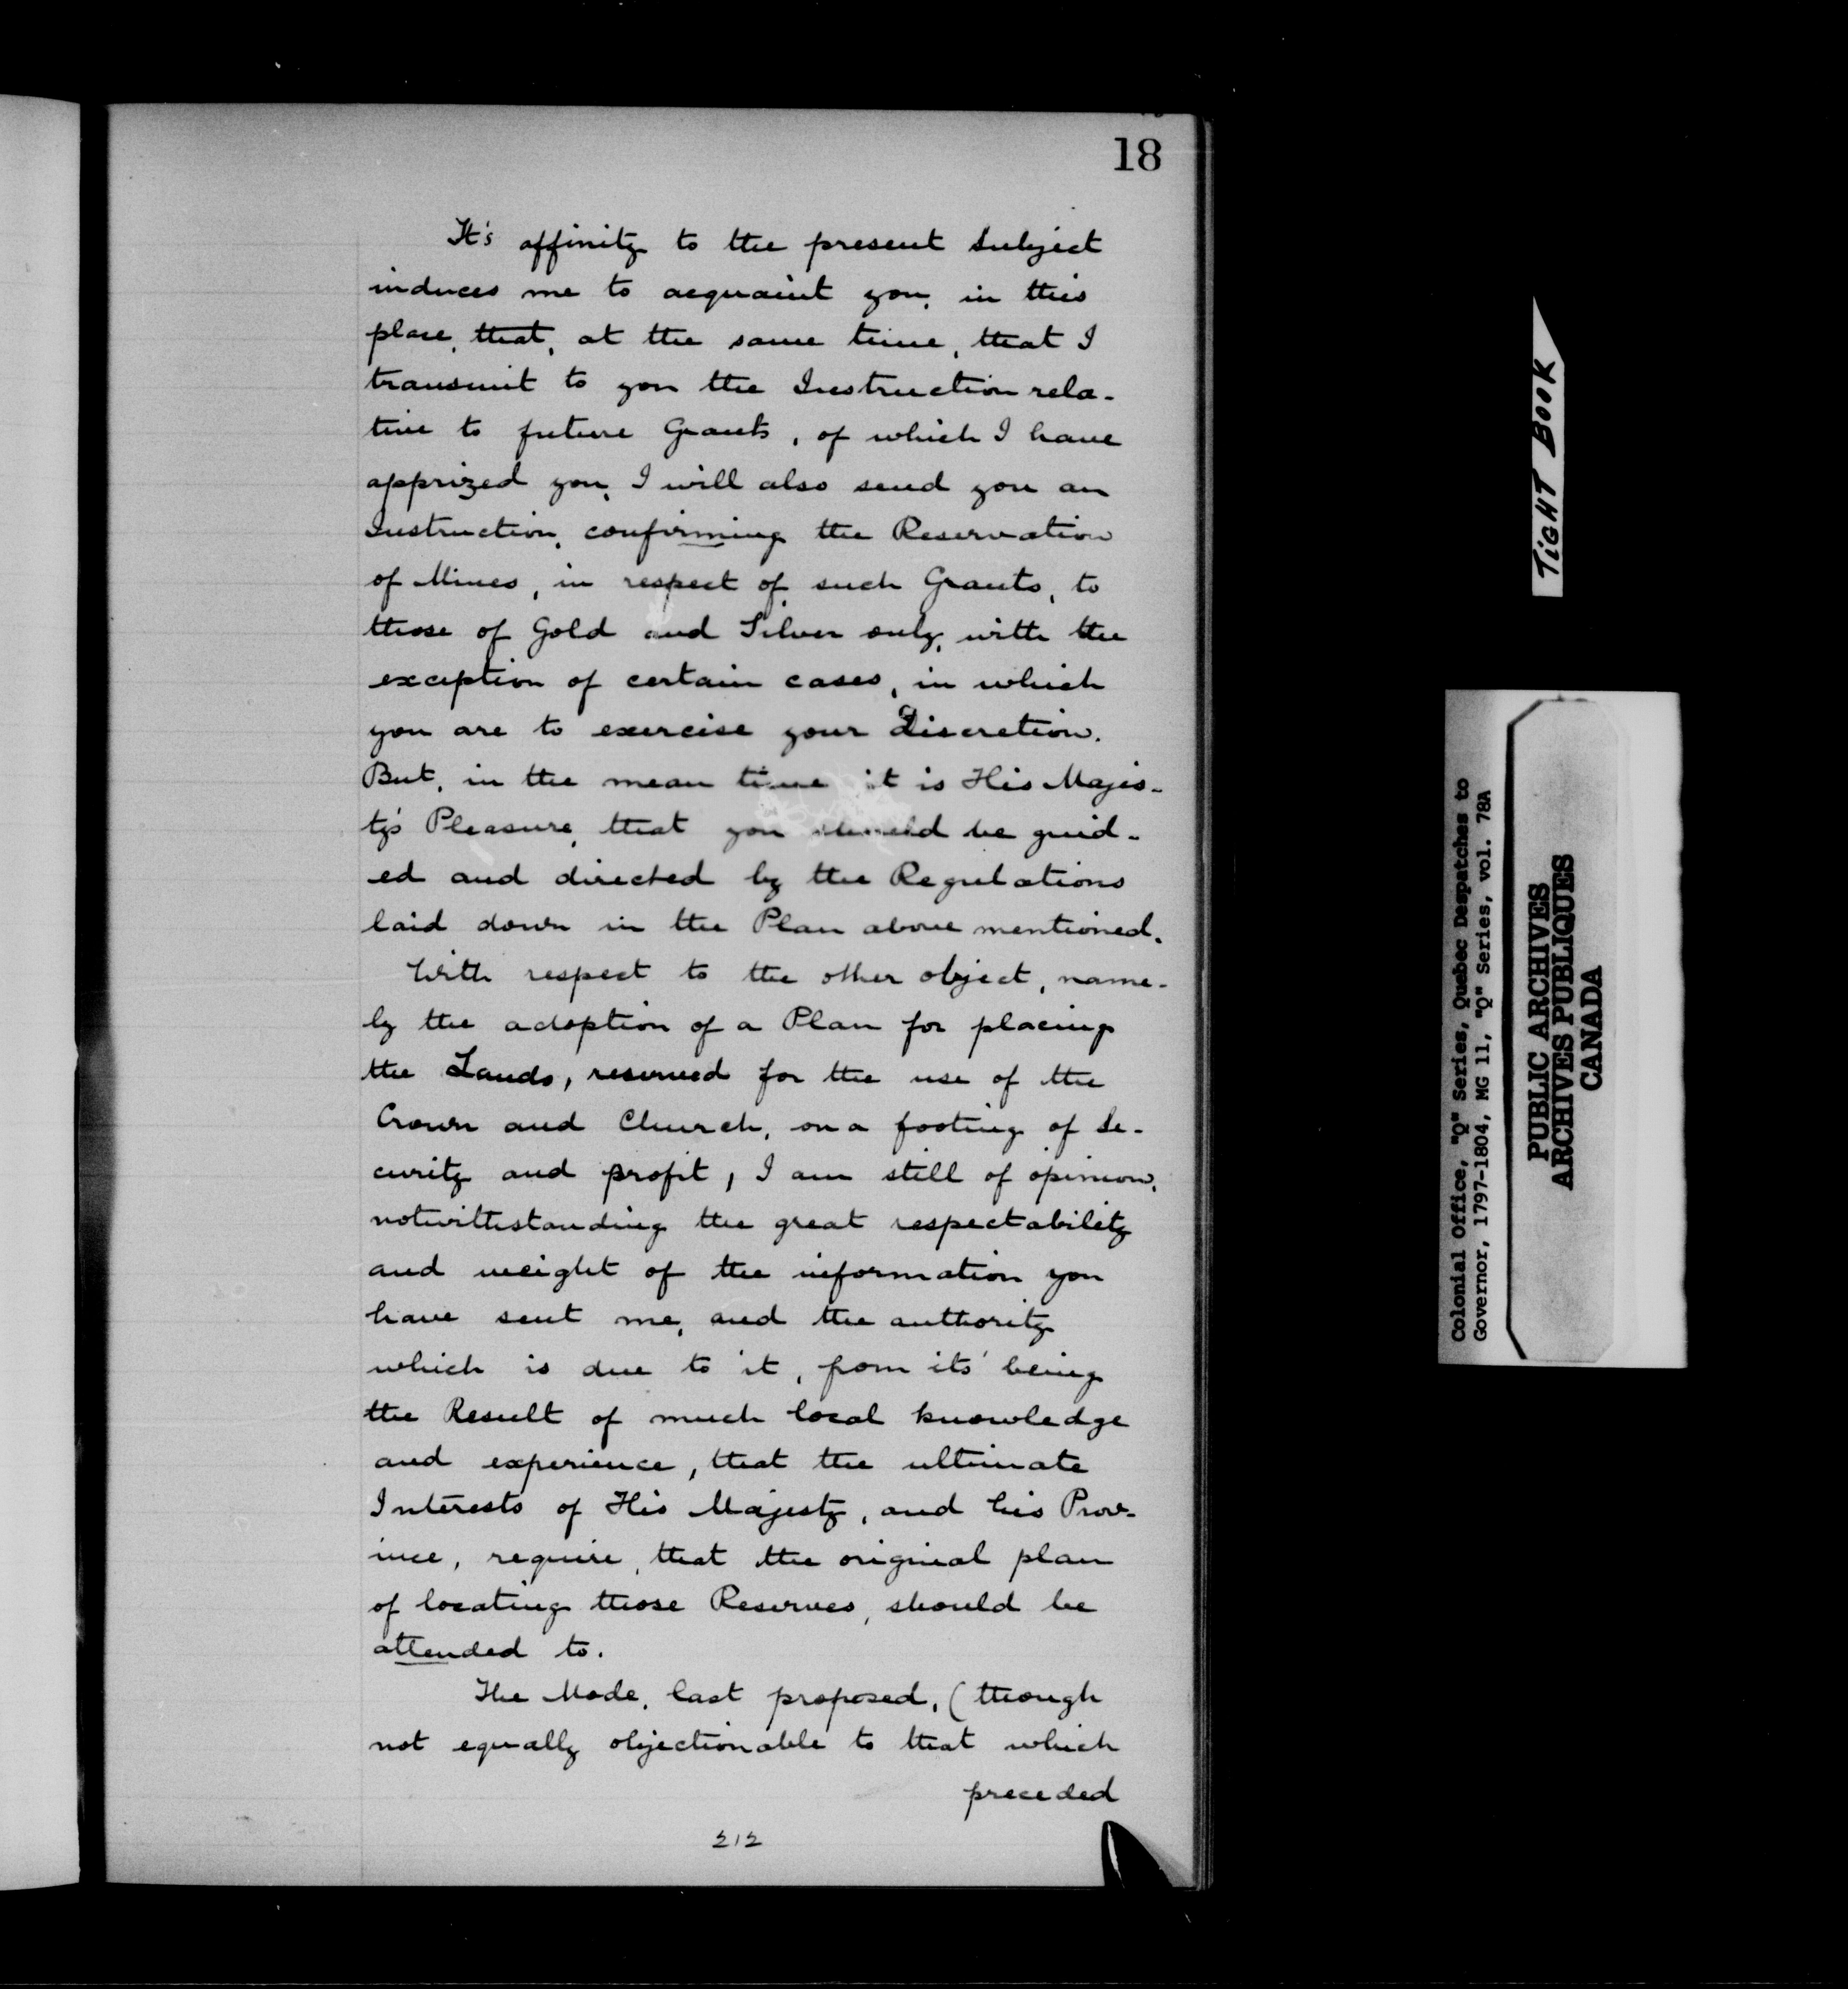 18
It's affinity to the present Subject
induces me to acquaint you, in this
place, that, at the same time, that I
transmit to you the Instruction rela-
tive to future Grants, of which I have
apprized you, I will also send you an
Instruction, confirming the Reservation
of Mines, in respect of such Grants, to
those of Gold and Silver only, with the
exception of certain cases, in which
you are to exercise your Discretion.
But, in the mean time it is His Majes-
ty's Pleasure, that you should be guid-
ed and directed by the Regulations
laid down in the Plan above mentioned.
With respect to the other object, name-
ly the adoption of a Plan for placing
the Lands, reserved for the use of the
Crown and Church, on a footing of Se-
curity and profit, I am still of opinion,
notwithstanding the great respectability
and weight of the information you
have sent me, and the authority
which is due to it, from its' being
the Result of much local knowledge
and experience, that the ultimate
Interests of His Majesty, and his Prov-
ince, require, that the original plan
of locating those Reserves, should be
attended to.
The Mode, last proposed, (though
not equally objectionable to that which
preceded
212
TIGHT BOOK
Colonial Office, "Q" Series, Quebec Despatches to
Governor, 1797-1804, MG 11, "Q" Series, vol. 78A
PUBLIC ARCHIVES
ARCHIVES PUBLIQUES
CANADA